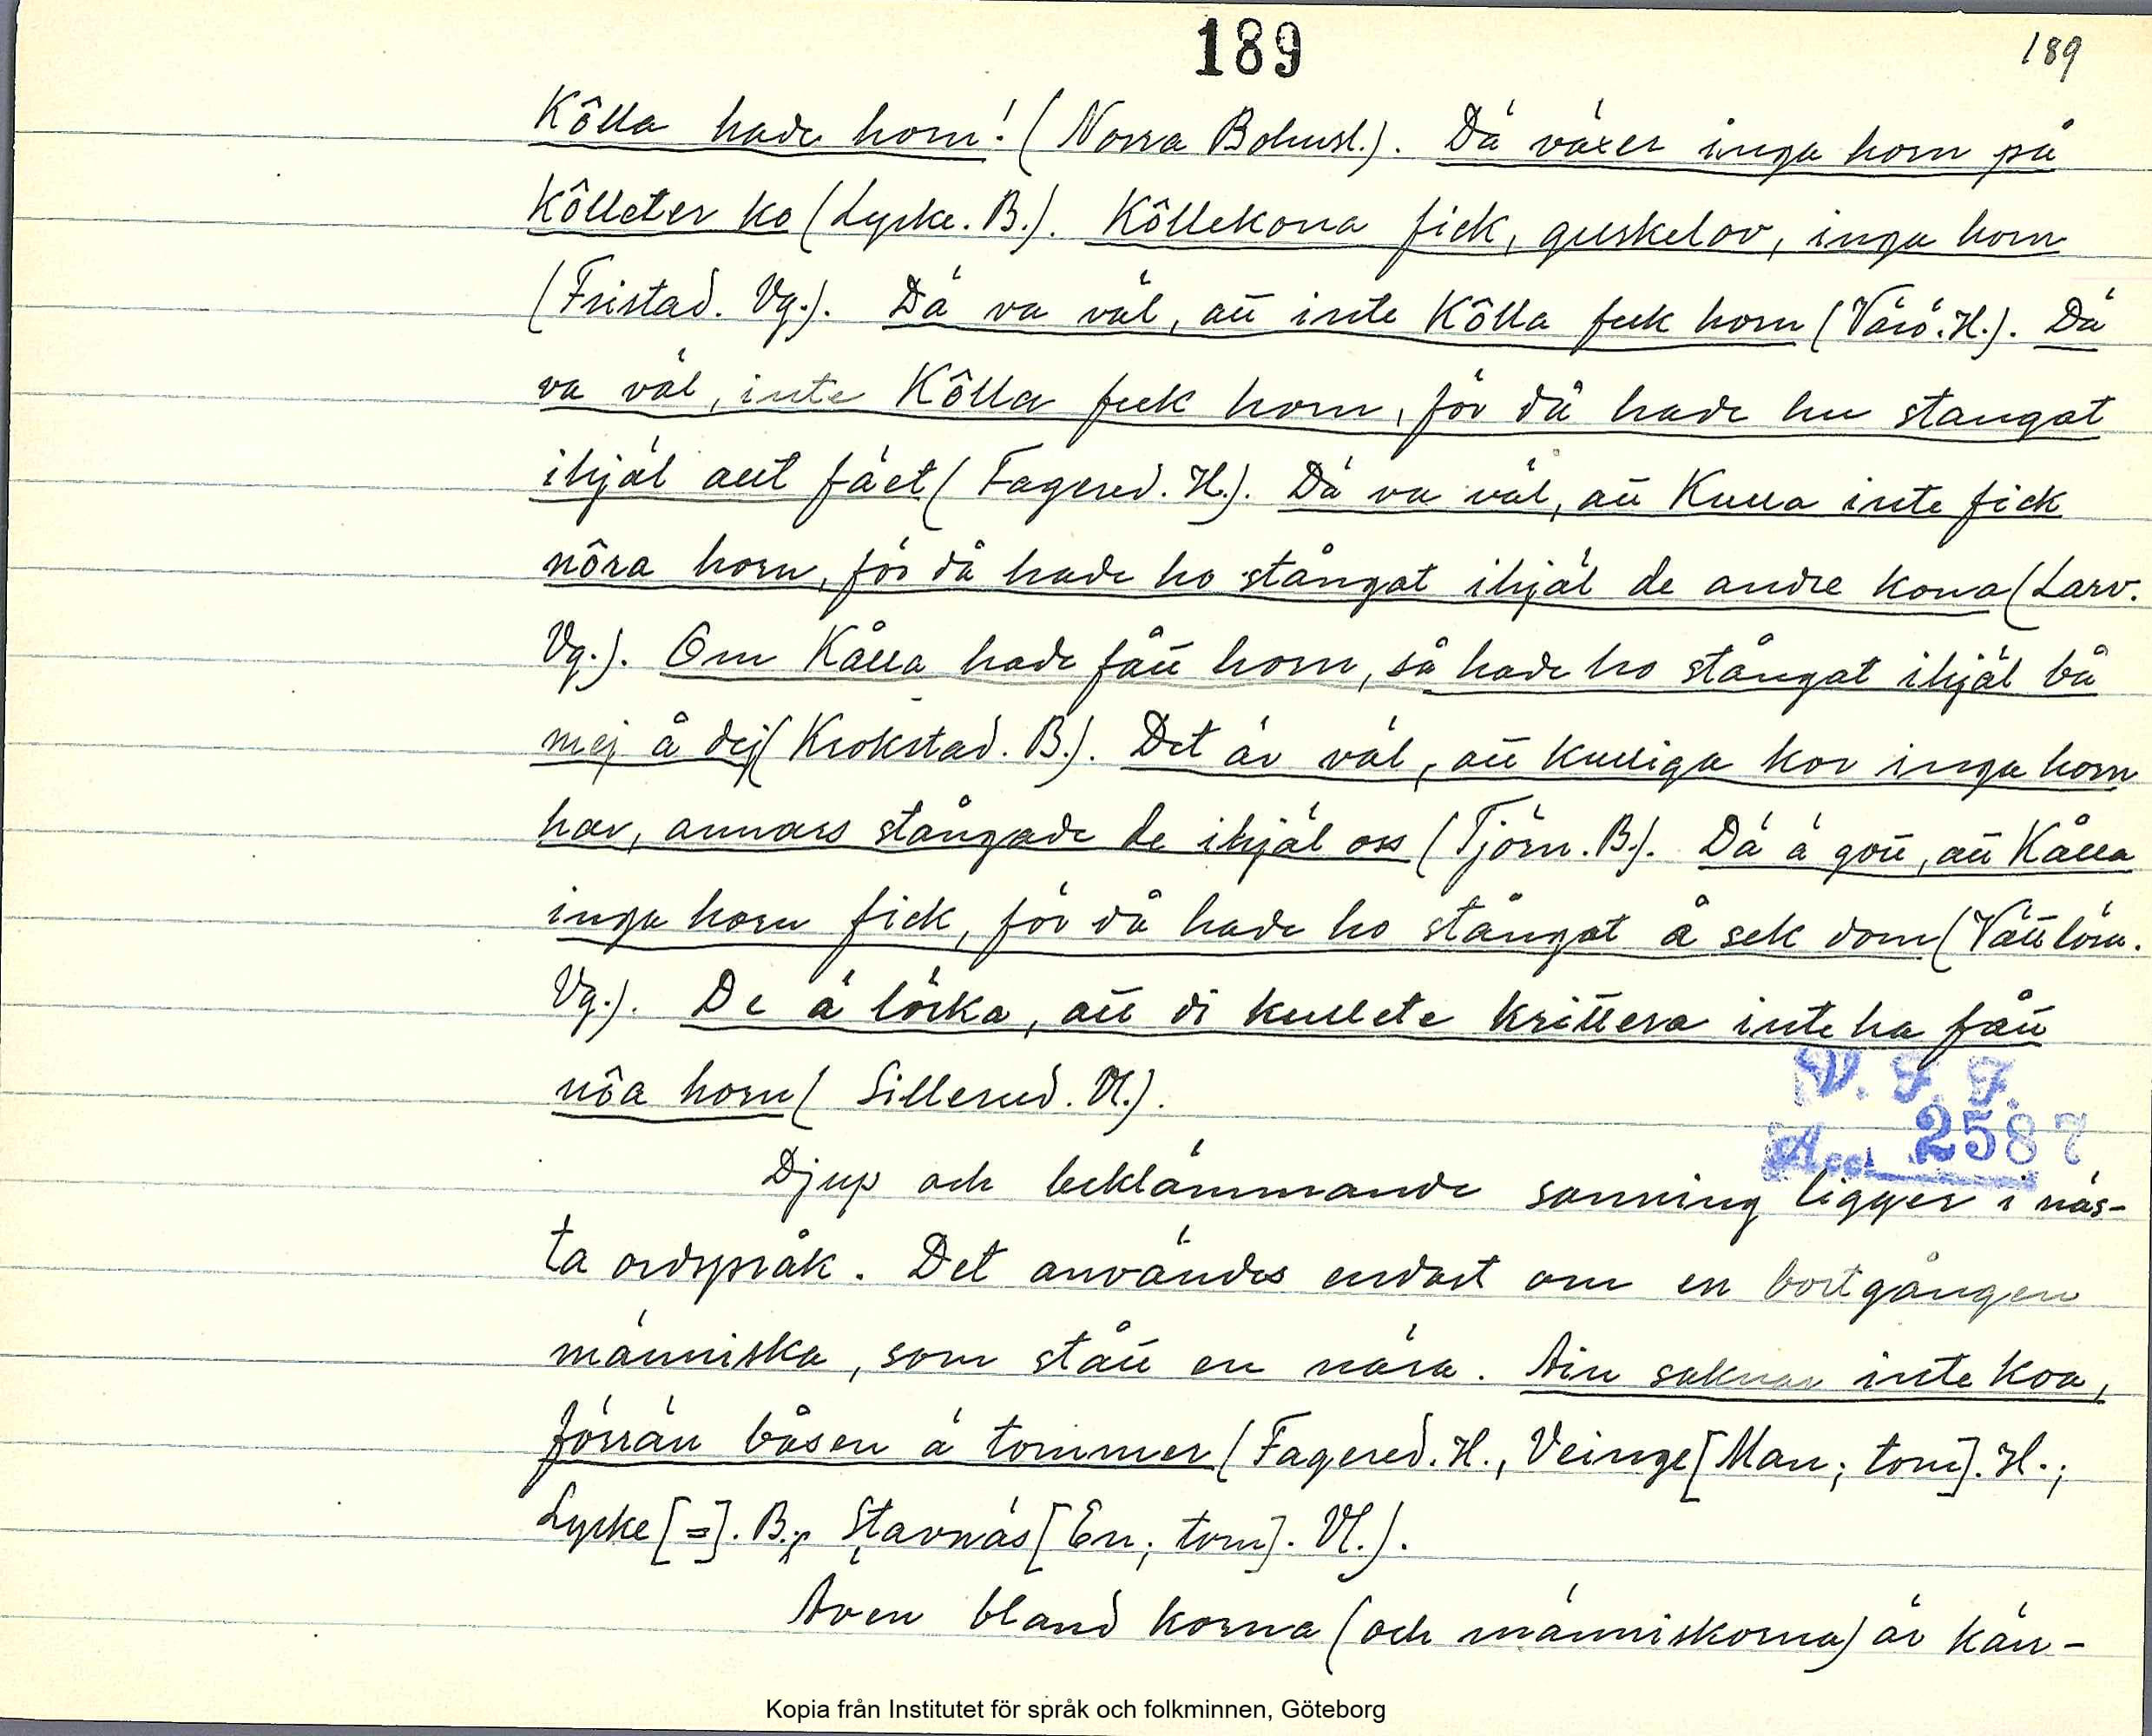 189
189
Kôlla hade horn! (Norra Bohusl.). Dä växer inga horn på
kôlleter ko (Lycke. B.). Kôllekona fick, guskelov, inga horn
(Fristad. Vg.). Dä va väl, att inte Kôlla feck horn (Värö. H.). Dä
va väl, inte Kôlla feck horn, för då hade hu stangat
ihjäl aut fäet (Fagered. H.). Dä va väl, att Kulla inte fick
nôra horn, för då hade ho stångat ihjäl de andre kona (Larv.
Vg.). Om Kålla hade fått horn, så hade ho stångat ihjäl bå
mej å dej (Krokstad. B.). Det är väl, att kulliga kor inga horn
har, annars stångade de ihjäl oss (Tjörn. B.). Dä ä gott, att Kålla
inga horn fick, för då hade ho stångat å sek dom (Vättlösa.
Vg.). De ä löcka, att di kullete krittera inte ha fått
nôa horn (Sillerud. Vl.).
V. F. F.
Acc. 2587
Djup och beklämmande sanning ligger i näs-
ta ordspråk. Det användes endast om en bortgången
människa, som stått en nära. Ain saknar inte koa,
förrän båsen ä tommer (Fagered. H., Veinge [Man; tom]. H.;
Lycke [=]. B.; Stavnäs [En; tom]. Vl.).
Även bland korna (och människorna) är kär-
Kopia från Institutet för språk och folkminnen, Göteborg